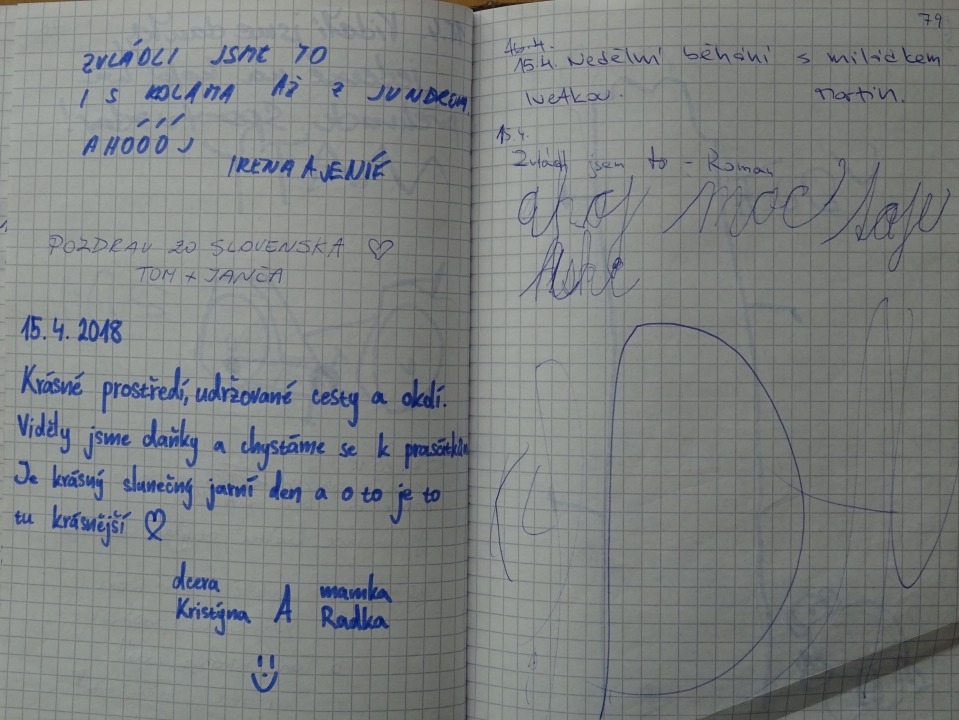 ZVLÁDLI JSME TO
I S KOLAMA AŽ Z JUNDROV
AHÓÓÓJ
IRENA A JENÍK
POZDRAV ZO SLOVENSKA ♡
TOM + JANČA
15.4.2018
Krásné prostředí, udržované cesty a okolí.
Viděly jsme daňky a chystáme se k prasátkům
Je krásný slunečný jarní den a o to je to
tu krásnější ♡
dcera mamka
Kristýna A Radka
79
15.4. Nedělní běhání s miláčkem
Ivetkou. Martin.
15.4.
Zvládl jsem to - Roman
ahoj moc